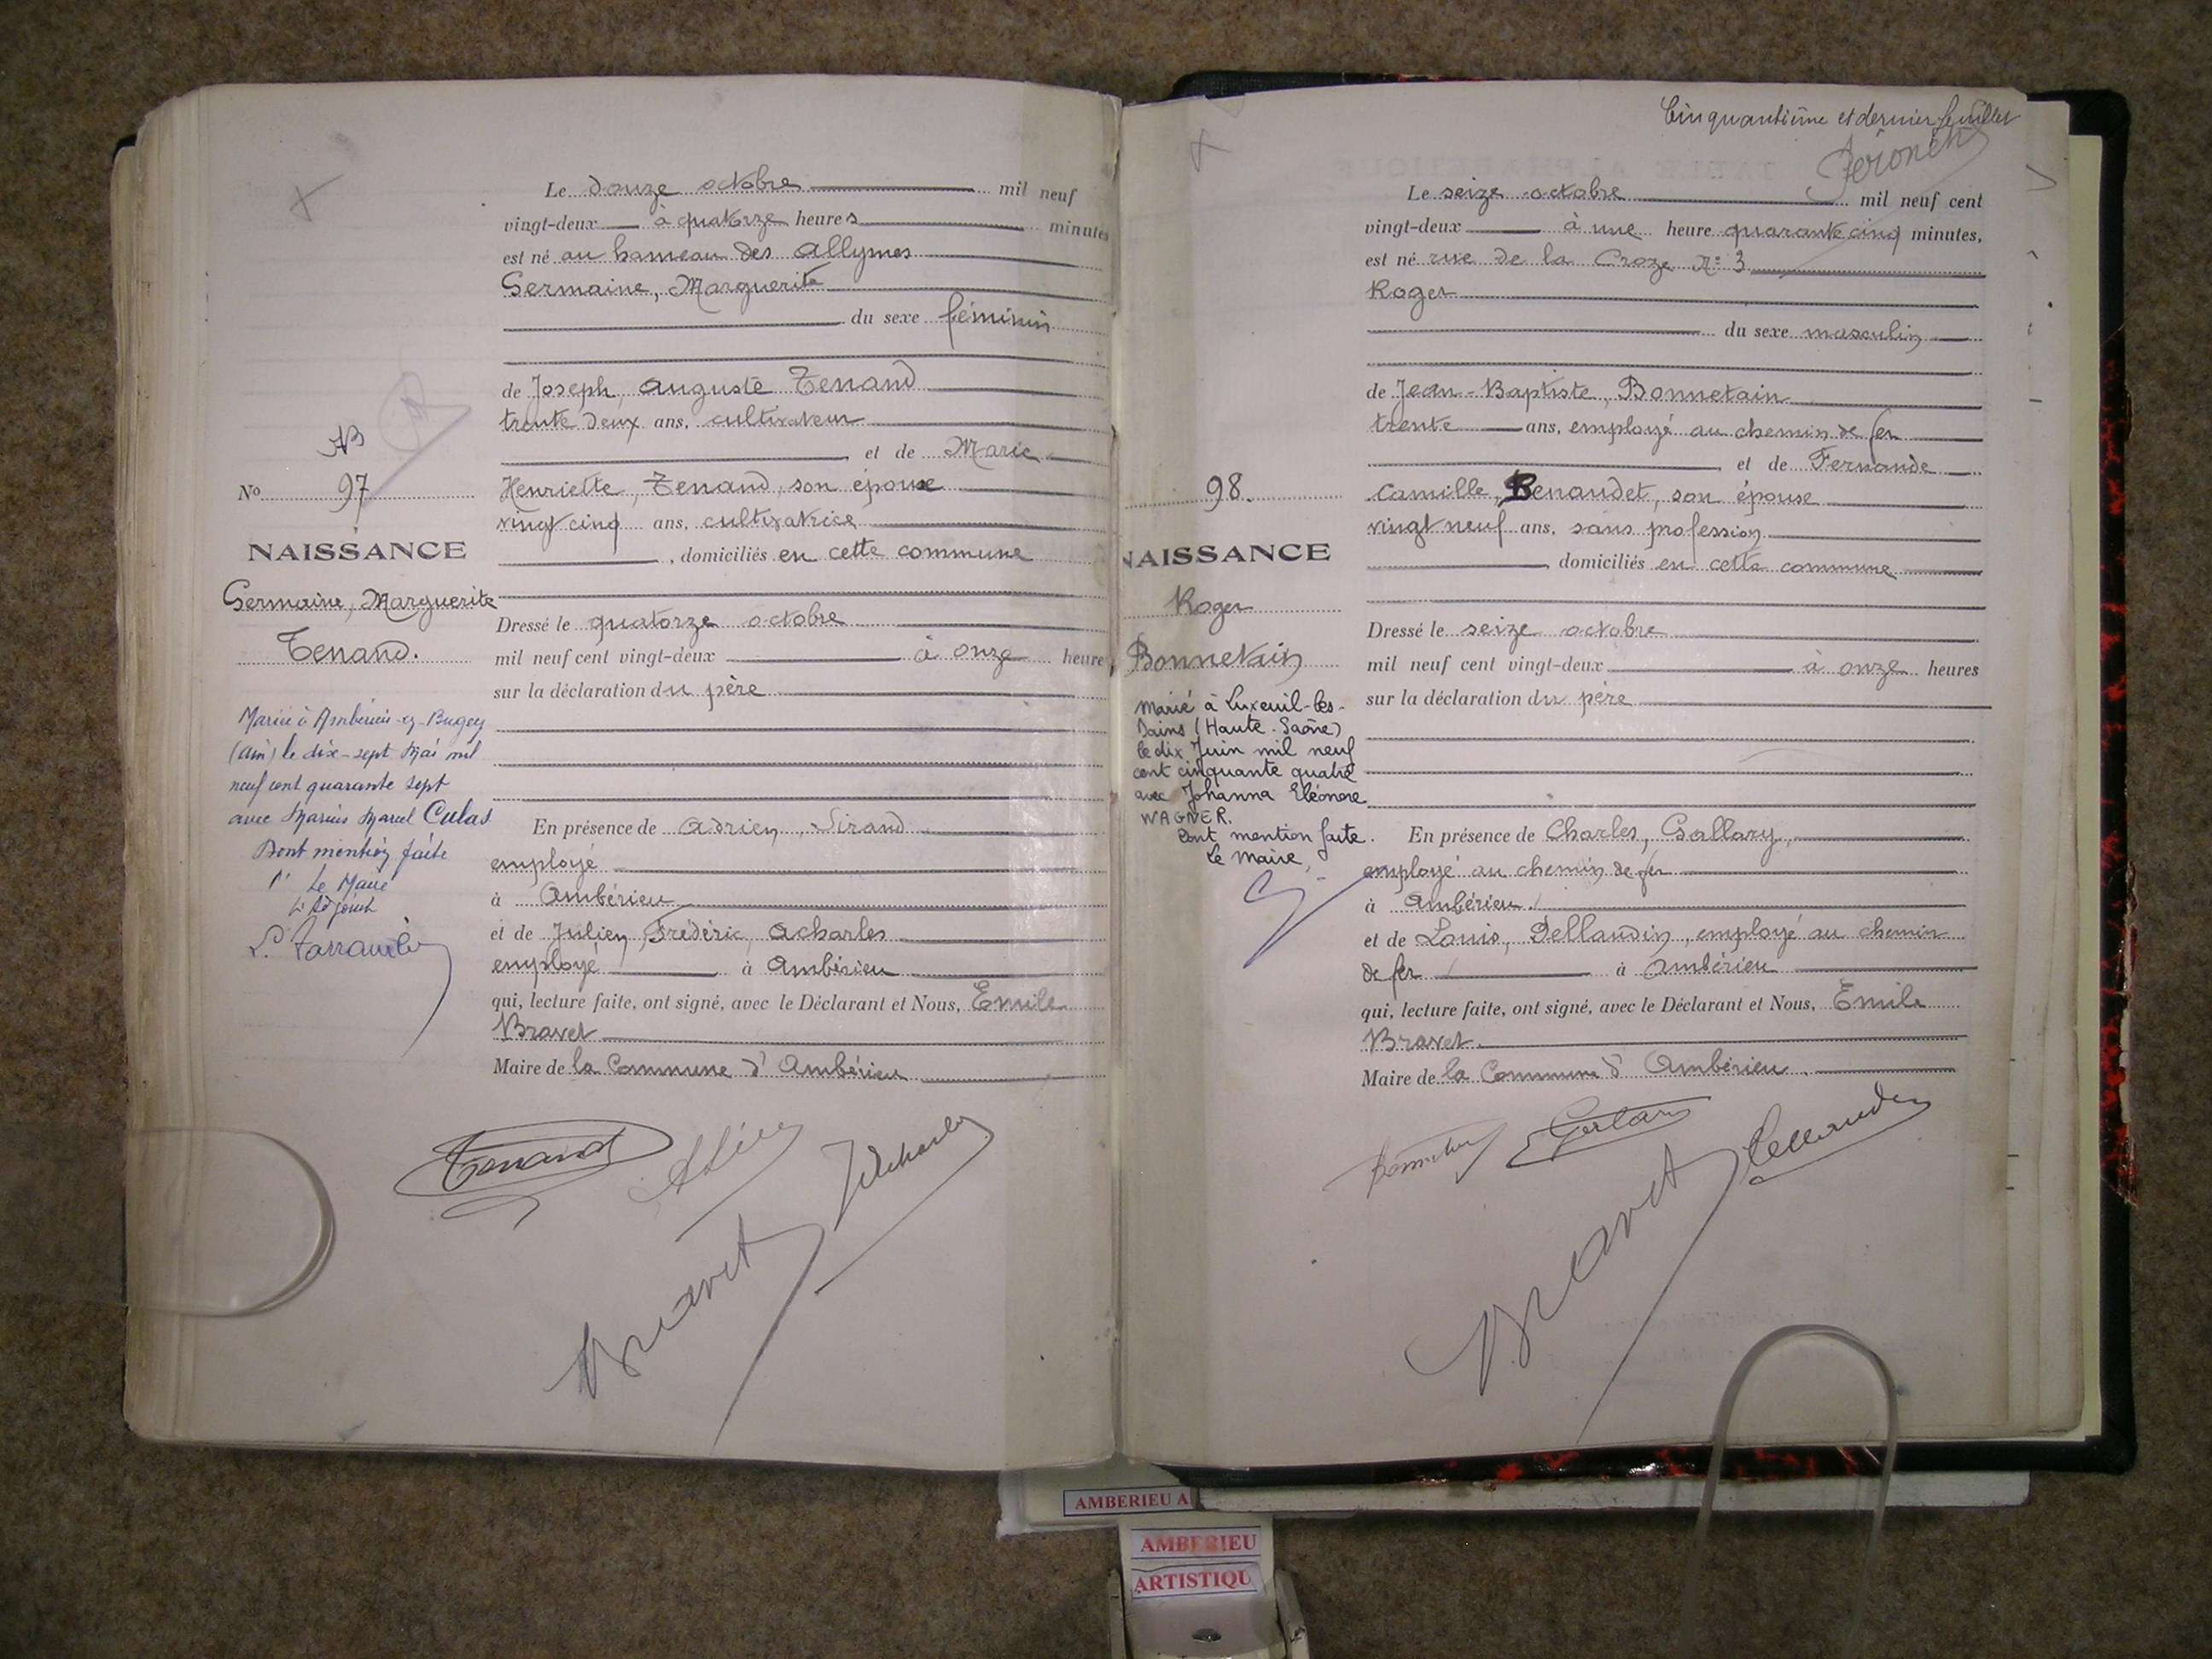 Le douze octobre mil neuf
vingt-deux à quatorze heures minutes
est né au hameau des Allymes
Germaine, Marguerite
du sexe féminin
de Joseph, Auguste Tenand
trente deux ans, cultivateur
et de Marie
Henriette, Tenand, son épouse
vingt cinq ans, cultivatrice
, domiciliés en cette commune
Dressé le quatorze octobre
mil neuf cent vingt-deux à onze heure
sur la déclaration du père
En présence de Adrien, Sirand
employé
à Ambérieu
et de Julien, Frédéric, Acharles
employé à Ambérieu
qui, lecture faite, ont signé, avec le Déclarant et Nous, Emile
Bravet
Maire de la Commune d'Ambérieu
Tenand
Bravet
No 97
NAISSANCE
Germaine, Marguerite
Tenand.
Mariée à Ambérieu-en-Bugey
(Ain) le dix-sept Mai mil
neuf cent quarante sept
avec Marius Marcel Culas
Dont mention faite
Le Maire
L'Adjoint
Cinquantième et dernier feuillet
Le seize octobre mil neuf cent
vingt-deux à une heure quarante cinq minutes,
est né rue de la Croze N° 3
Roger
du sexe masculin
de Jean-Baptiste, Bonnetain
trente ans, employé au chemin de fer
et de Fernande
Camille, Renaudet, son épouse
vingt neuf ans, sans profession
, domiciliés en cette commune
Dressé le seize octobre
mil neuf cent vingt-deux à onze heures
sur la déclaration du père
En présence de Charles,
employé au chemin de fer
à Ambérieu
et de Louis, Dellandin, employé au chemin
de fer à Ambérieu
qui, lecture faite, ont signé, avec le Déclarant et Nous, Emile
Bravet
Maire de la Commune d'Ambérieu
Bravet
98.
NAISSANCE
Roger
Bonnetain
Marié à Luxeuil-les-
Bains (Haute-Saône)
le dix Juin mil neuf
cent cinquante quatre
avec Johanna Eléonore
WAGNER.
Dont mention faite.
Le Maire,
AMBERIEU A
AMBERIEU
ARTISTIQU